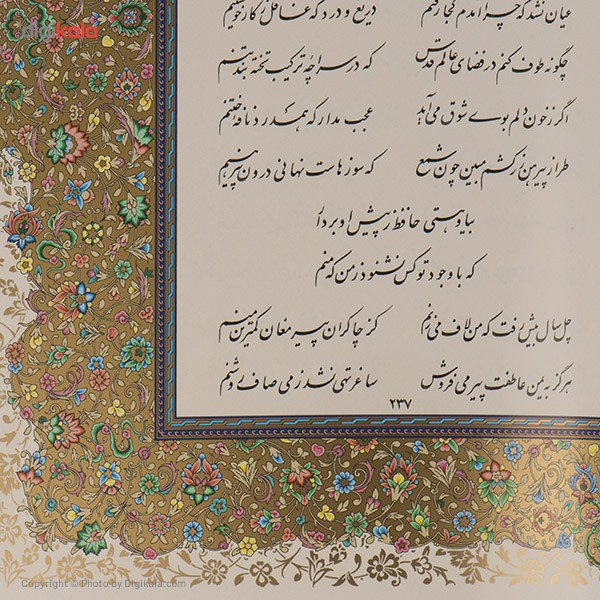 digikala
عیان نشد که چرا آمدم کجا رفتم دریغ و درد که غافل ز کار خویشتنم
چگونه طوف کنم در فضای عالم قدس که در سراچهٔ ترکیب تخته بند تنم
اگر ز خون دلم بوی شوق می‌آید عجب مدار که همدرد نافهٔ ختنم
طراز پیرهن زرکشم مبین چون شمع که سوزهاست نهانی درون پیرهنم
بیا و هستی حافظ ز پیش او بردار
که با وجود تو کس نشنود ز من که منم
چل سال بیش رفت که من لاف می‌زنم کز چاکران پیر مغان کمترین منم
هرگز به یمن عاطفت پیر می فروش ساغر تهی نشد ز می صاف روشنم
۲۳۷
Copyright © Photo by Digikala.com